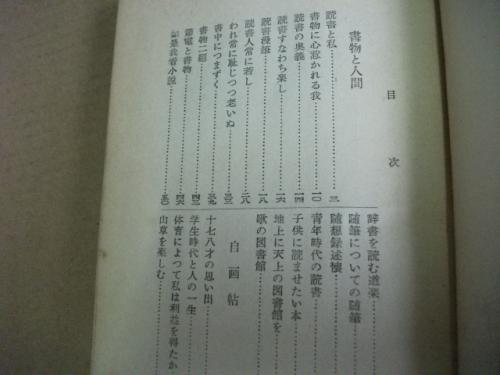 目次
書物と人間
読書と私……三
書物に心惹かれる我……一〇
読書の奥義……一四
読書すなわち楽し……一六
読書漫筆……一八
読書人常に若し……二八
われ常に恥じつつ老いぬ……三三
書中につまずく……三九
書物二題……四三
節電と書物……四六
如是我看小説……五〇
辞書を読む道楽
随筆についての随筆
随想録述懐
青年時代の読書
子供に読ませたい本
地上に天上の図書館を
歌の図書館
自画帖
十七八才の思い出
学生時代と人の一生
体育によつて私は利益を得たか
山草を楽しむ